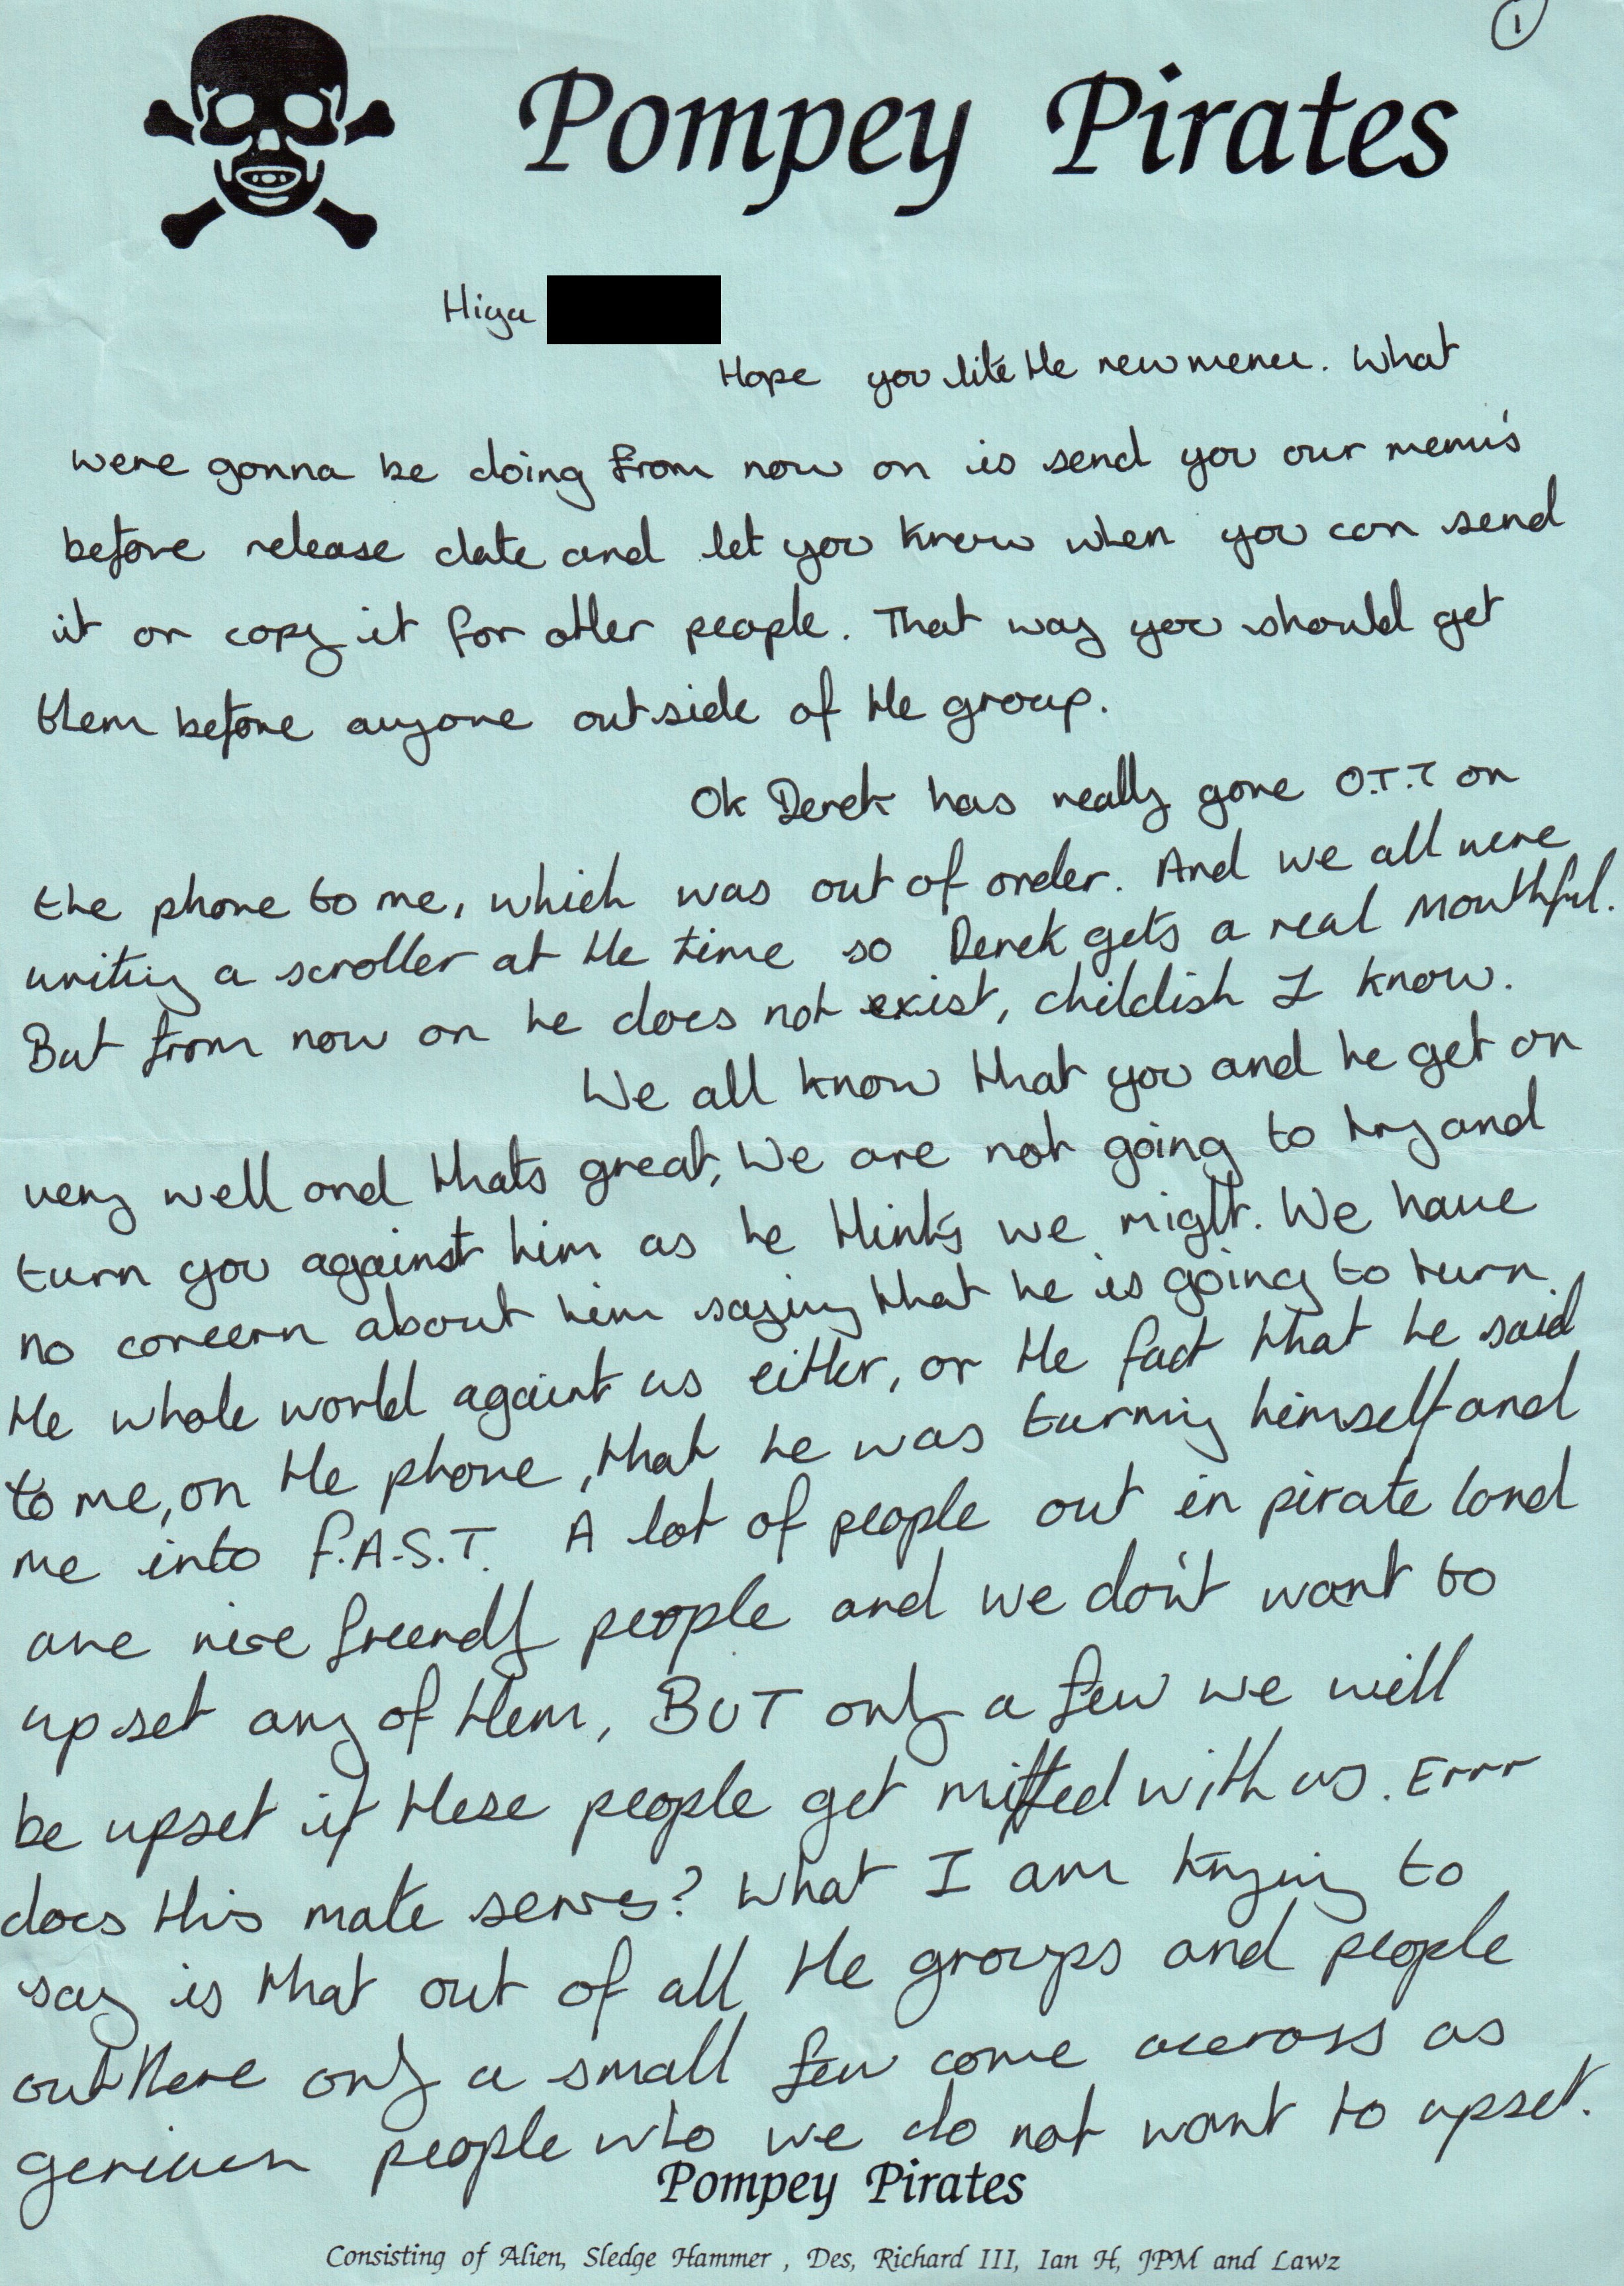 1
Pompey Pirates
Hiya
Hope you like the new menu. What
were gonna be doing from now on is send you our menu's
before release date and let you know when you can send
it or copy it for other people. That way you should get
them before anyone outside of the group.
Ok Derek has really gone O.T.T on
the phone to me, which was out of order. And we all were
writing a scroller at the time so Derek gets a real mouthful.
But from now on he does not exist, childish I know.
We all know that you and he get on
very well and thats great, We are not going to try and
turn you against him as he thinks we might. We have
no concern about him saying that he is going to turn
the whole world against us either, or the fact that he said
to me, on the phone, that he was turning himself and
me into F.A.S.T. A lot of people out in pirate land
are nice freendly people and we don't want to
upset any of them, BUT only a few we will
be upset if these people get miffed with us. Errr
does this mate sense? What I am trying to
say is that out of all the groups and people
out there only a small few come accross as
people who we do not want to upset.
Pompey Pirates
Consisting of Alien, Sledge Hammer , Des, Richard III, Ian H, JPM and Lawz